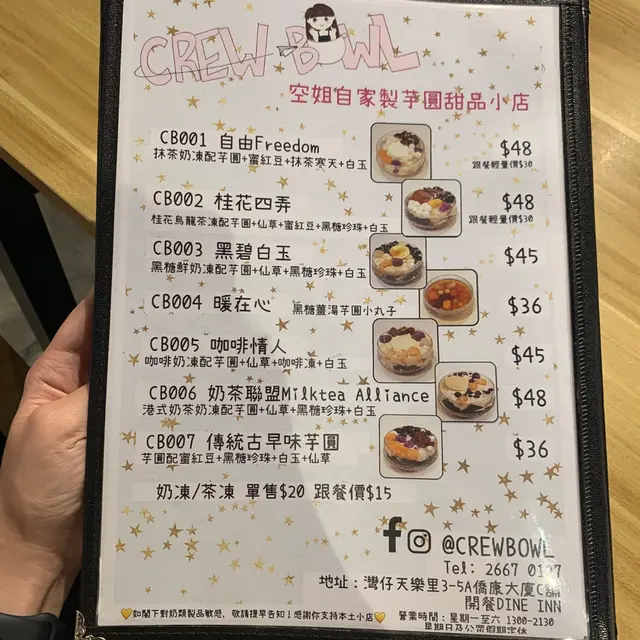 CREW BOWL
空姐自家製芋圓甜品小店
CB001 自由Freedom $48
抹茶奶凍配芋圓+蜜紅豆+抹茶寒天+白玉 跟餐輕量價$30
CB002 桂花四弄 $48
桂花烏龍茶凍配芋圓+仙草+蜜紅豆+黑糖珍珠+白玉 跟餐輕量價$30
CB003 黑碧白玉 $45
黑糖鮮奶凍配芋圓+仙草+黑糖珍珠+白玉
CB004 暖在心 黑糖薑湯芋圓小丸子 $36
CB005 咖啡情人 $45
咖啡奶凍配芋圓+仙草+咖啡凍+白玉
CB006 奶茶聯盟Milktea Alliance $48
港式奶茶奶凍配芋圓+仙草+黑糖珍珠+白玉
CB007 傳統古早味芋圓 $36
芋圓配蜜紅豆+黑糖珍珠+白玉+仙草
奶凍/茶凍 單售$20 跟餐價$15
@CREWBOWL
Tel: 2667
地址：灣仔天樂里3-5A僑康大廈C舖
開餐DINE INN
營業時間：星期一至六 1300-2130
星期日及公眾假期休息
如閣下對奶類製品敏感，敬請提早告知！感謝你支持本土小店